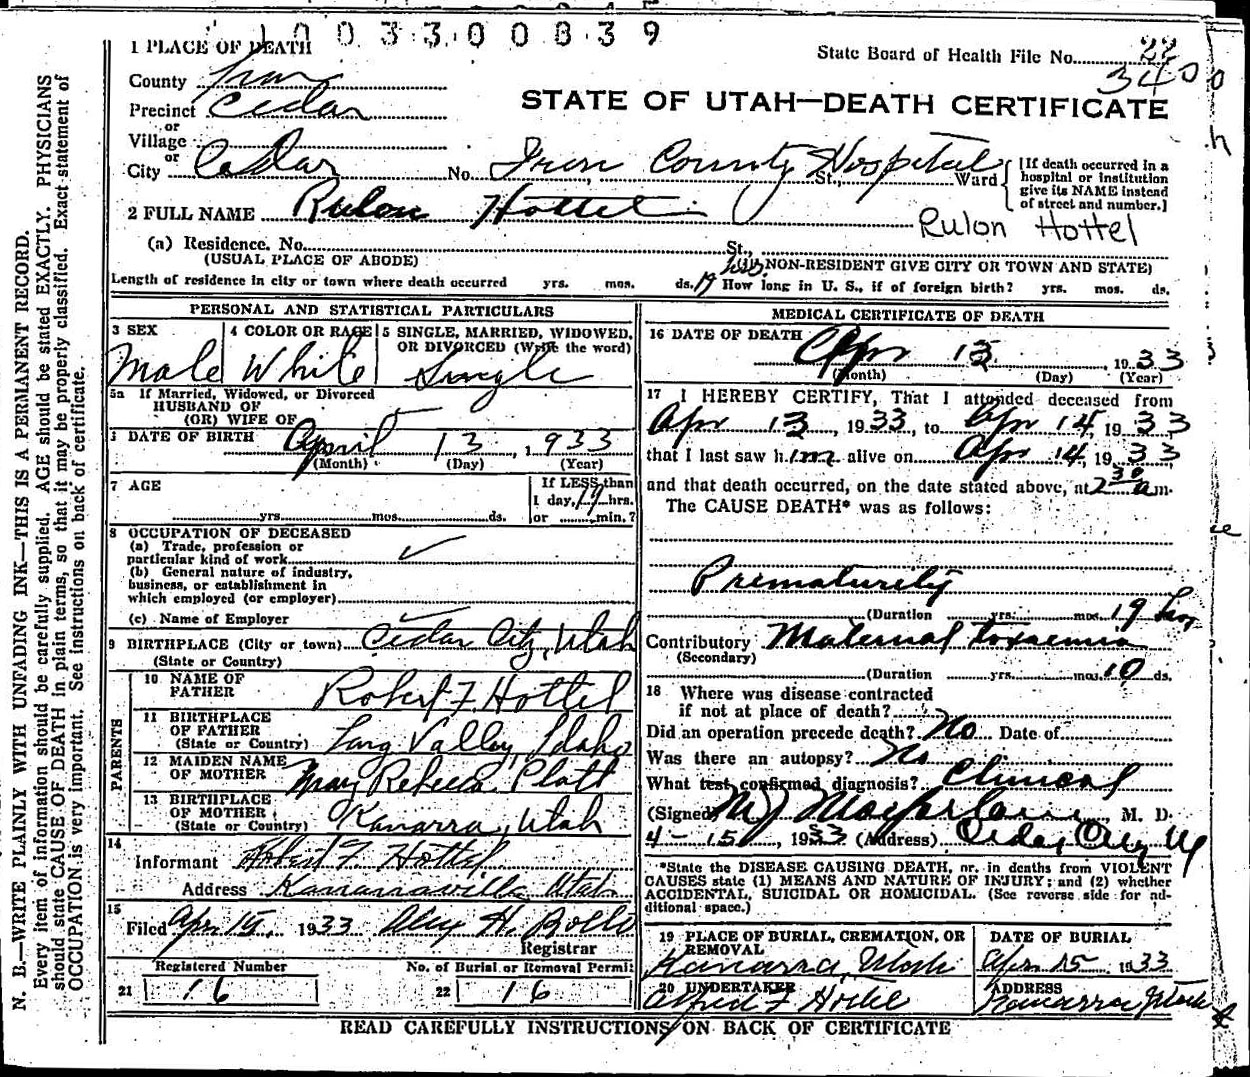 1003300839
1 PLACE OF DEATH
State Board of Health File No. 22
340
County Iron
STATE OF UTAH—DEATH CERTIFICATE
Precinct Cedar
or
Village
or
City Cedar No. Iron County Hospital St., Ward
[If death occurred in a
hospital or institution
give its NAME instead
of street and number.]
2 FULL NAME Rulon Hottel
Rulon Hottel
(a) Residence. No. St.,
(USUAL PLACE OF ABODE) NON-RESIDENT GIVE CITY OR TOWN AND STATE)
Length of residence in city or town where death occurred yrs. mos. ds. 19 hrs. How long in U. S., if of foreign birth? yrs. mos. ds.
PERSONAL AND STATISTICAL PARTICULARS
3 SEX
Male
4 COLOR OR RACE
White
5 SINGLE, MARRIED, WIDOWED,
OR DIVORCED (Write the word)
Single
5a If Married, Widowed, or Divorced
HUSBAND OF
(OR) WIFE OF
DATE OF BIRTH April 13, 1933
(Month) (Day) (Year)
7 AGE
yrs. mos. ds.
If LESS than
1 day, 19 hrs.
or min.?
8 OCCUPATION OF DECEASED
(a) Trade, profession or
particular kind of work
(b) General nature of industry,
business, or establishment in
which employed (or employer)
(c) Name of Employer
9 BIRTHPLACE (City or town) Cedar City, Utah
(State or Country)
PARENTS
10 NAME OF
FATHER Robert F. Hottel
11 BIRTHPLACE
OF FATHER
(State or Country) Long Valley, Idaho
12 MAIDEN NAME
OF MOTHER Mary Rebecca Platt
13 BIRTHPLACE
OF MOTHER
(State or Country) Kanarra, Utah
14
Informant Robert F. Hottel
Address Kanarraville Utah
15
Filed Apr. 15, 1933
Registrar
Registered Number
21 16
No. of Burial or Removal Permit
22 16
MEDICAL CERTIFICATE OF DEATH
16 DATE OF DEATH Apr 13, 1933
(Month) (Day) (Year)
17 I HEREBY CERTIFY, That I attended deceased from
Apr 13, 1933, to Apr 14, 1933
that I last saw him alive on Apr 14, 1933
and that death occurred, on the date stated above, at 2 30 a m.
The CAUSE DEATH* was as follows:
Prematurity
(Duration yrs. mos. 19 hrs
Contributory Maternal toxaemia
(Secondary)
(Duration yrs. mos. 10 ds.
18 Where was disease contracted
if not at place of death?
Did an operation precede death? No Date of
Was there an autopsy? No
What test confirmed diagnosis? Clinical
(Signed) M J Macfarlane, M. D.
4-15, 1933 (Address) Cedar City Ut
*State the DISEASE CAUSING DEATH, or, in deaths from VIOLENT
CAUSES state (1) MEANS AND NATURE OF INJURY; and (2) whether
ACCIDENTAL, SUICIDAL OR HOMICIDAL. (See reverse side for ad-
ditional space.)
19 PLACE OF BURIAL, CREMATION, OR
REMOVAL
Kanarra, Utah
DATE OF BURIAL
Apr. 15 1933
20 UNDERTAKER
Alfred F Hottel
ADDRESS
Kanarra Utah
READ CAREFULLY INSTRUCTIONS ON BACK OF CERTIFICATE
N. B.—WRITE PLAINLY WITH UNFADING INK—THIS IS A PERMANENT RECORD.
Every item of information should be carefully supplied. AGE should be stated EXACTLY. PHYSICIANS
should state CAUSE OF DEATH in plain terms, so that it may be properly classified. Exact statement of
OCCUPATION is very important. See instructions on back of certificate.